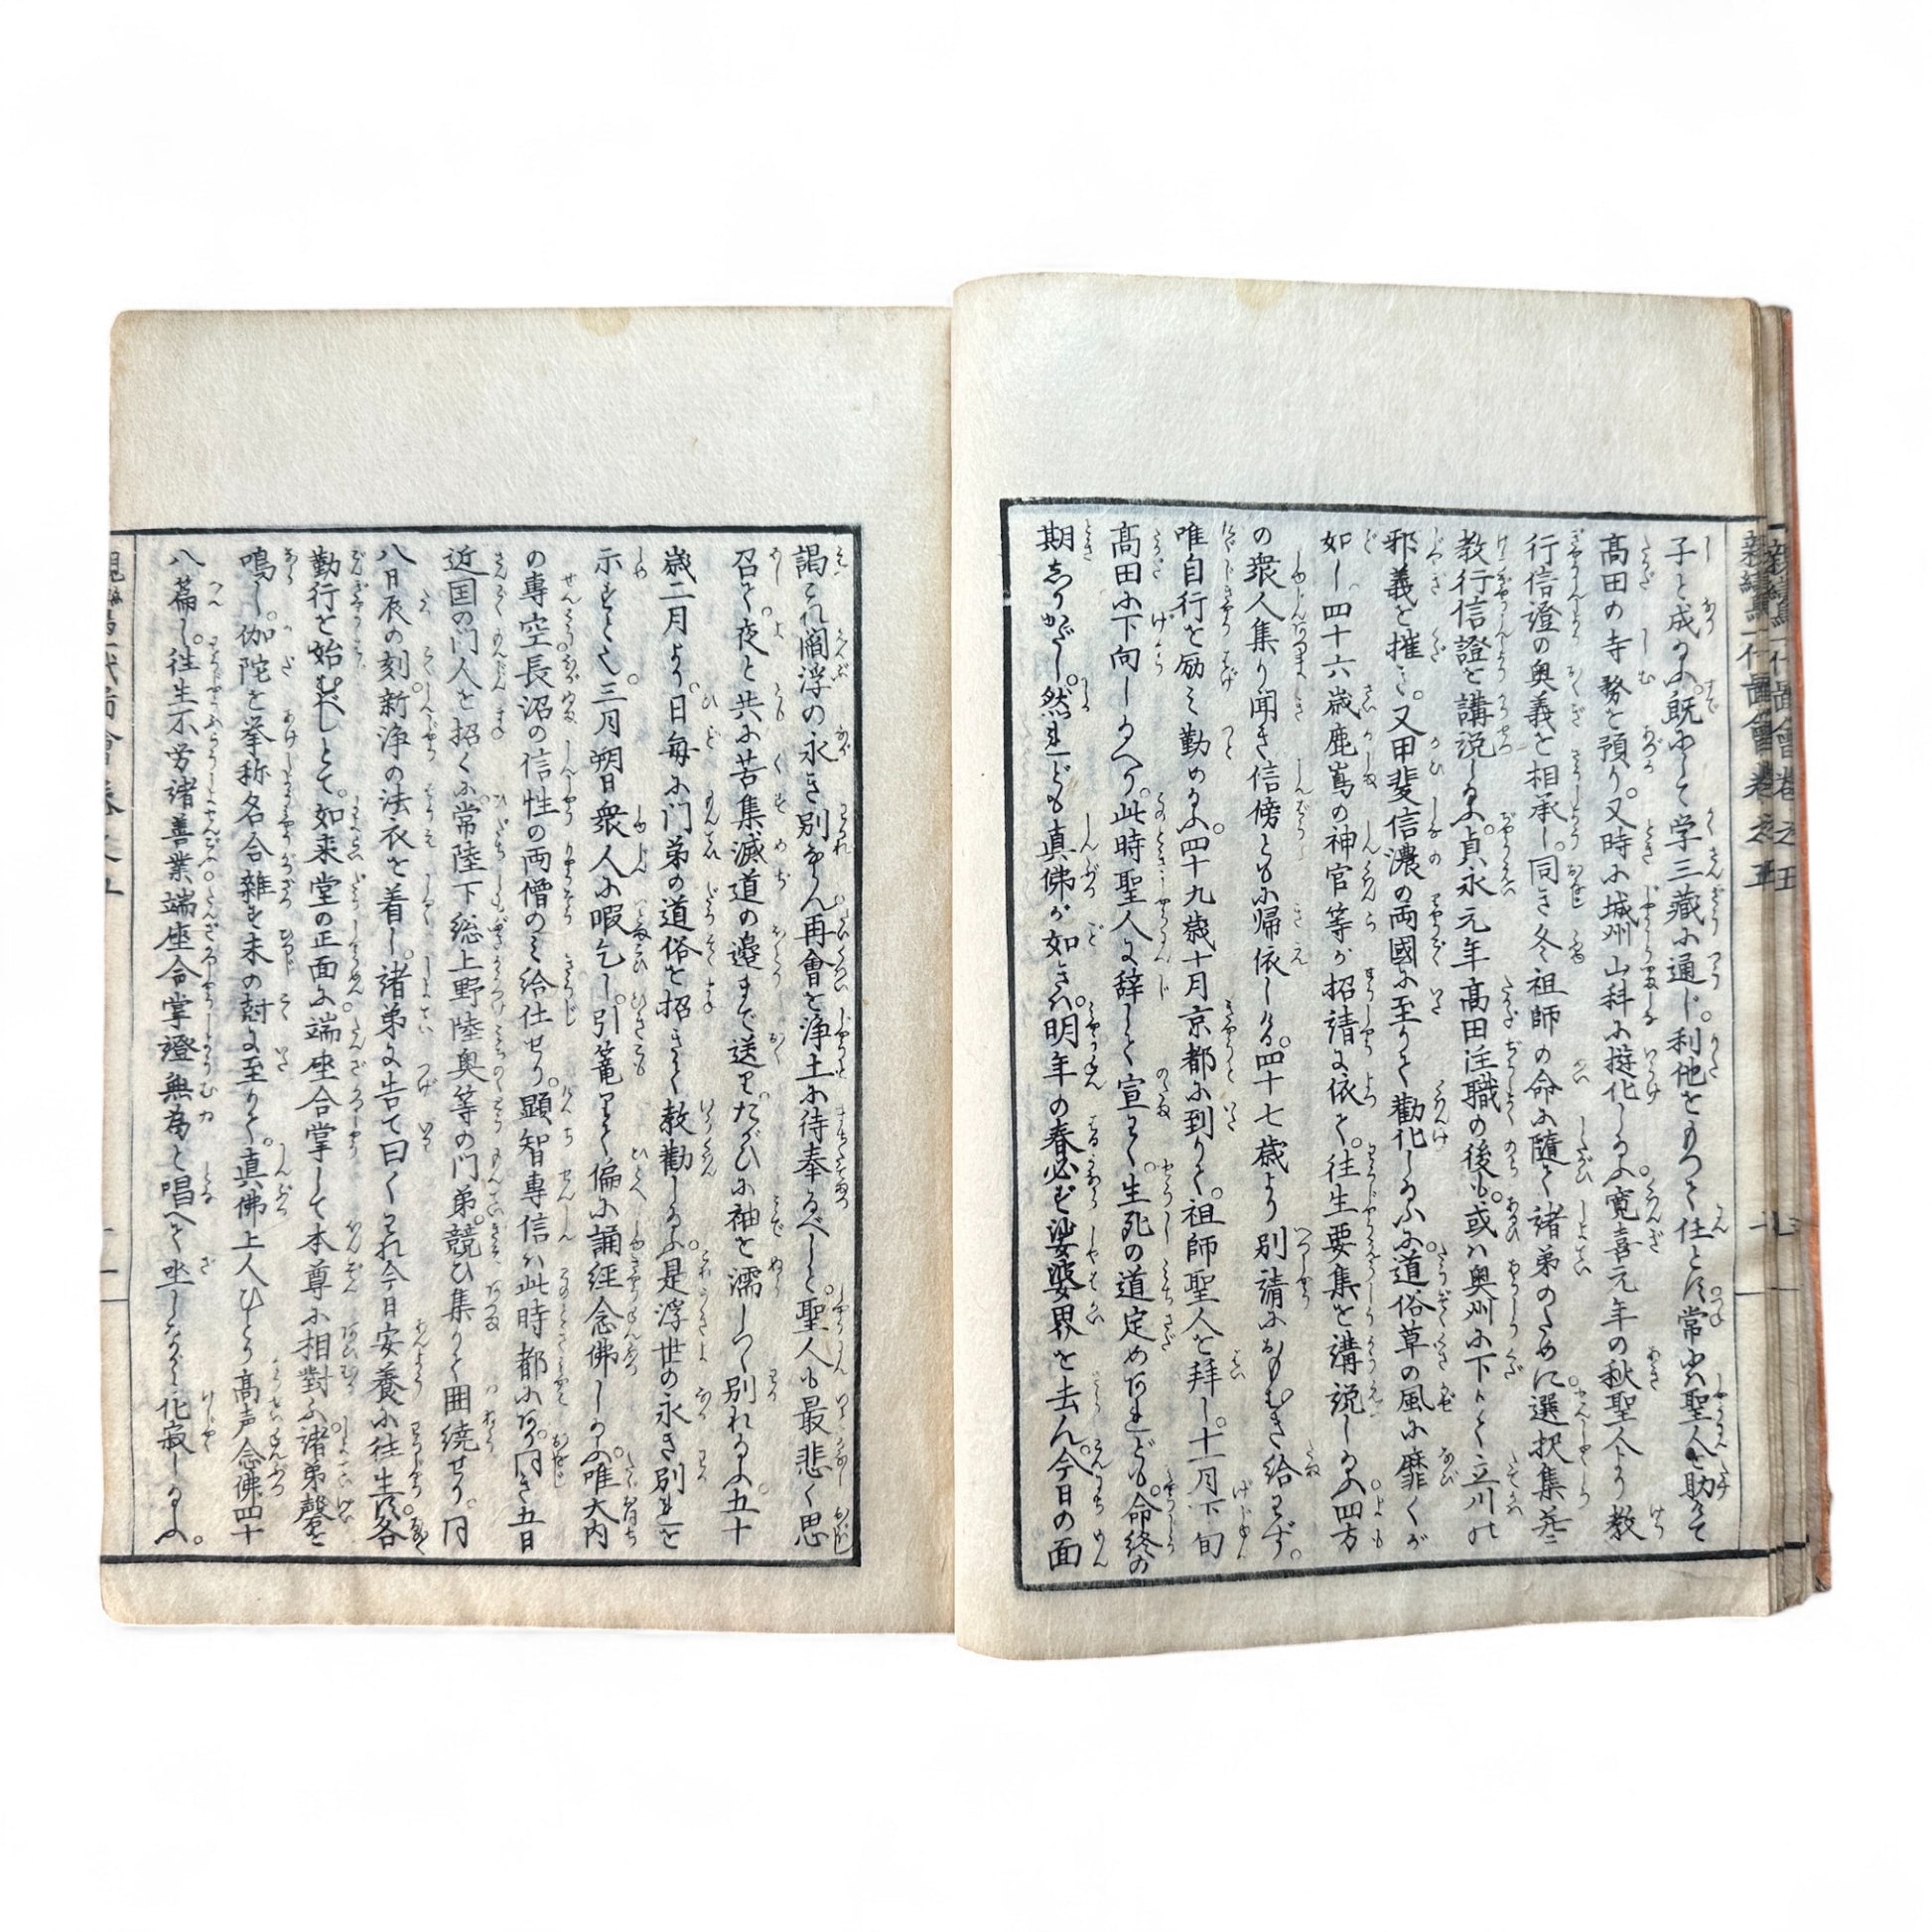 子と成るに。既にして学三藏に通じ。利他をもつて任とす。常には聖人を助けて
高田の寺務を預り。又時に城州山科に遊化しるに。寛喜元年の秋聖人より教
行信證の奥義を相承し。同き冬祖師の命に隨て諸弟のために。選択集并ニ
教行信證を講説しるに。貞永元年高田住職の後も。或ハ奥州に下りて立川の
邪義を摧き。又甲斐信濃の両國に至りて勸化しるに。道俗草の風に靡くが
如し。四十六歳鹿嶌の神官等が招請に依て。往生要集を講説しるに。四方
の衆人集り聞き信傍ともに帰依しる。四十七歳より別請におもむき給はず。
唯自行を励み勤めるに。四十九歳十月京都に到りて。祖師聖人を拜し。十一月下旬
高田に下向しるへり。此時聖人に辞して宣はく。生死の道定めなけれども。命終の
期しりがたし。然れども真佛が如きハ。明年の春必ず娑婆界を去ん。今日の面
謁これ閻浮の永き別ならん。再會を浄土に待奉るべしと。聖人も最悲く思
召て。夜と共に苦集滅道の邉まで送り。たがひに袖を濡しつゝ別れるに。五十
歳二月より。日毎に门弟の道俗を招きて教勸しるに。是浮世の永き別れを
示すとし。三月朔日衆人に暇乞し。引篭りて偏に誦経念佛しるに。唯大内
の專空長沼の信性の両僧のミ給仕せり。顕智專信ハ此時都にあり。同き五日
近国の门人を招くに。常陸下総上野陸奥等の门弟。競ひ集りて囲繞せり。同
八日辰の刻。新浄の法衣を着し。諸弟に告て曰くわれ今日安養に往生す。各
勤行を始むべしとて。如来堂の正面に。端座合掌して本尊に相對ふ。諸弟磬を
鳴し。伽陀を挙称名合雜を未の尅に至りて。真佛上人ひとり高声念佛四十
八篇し。往生不労諸善業端座合掌證無為と唱へて坐しながら化寂しるに。